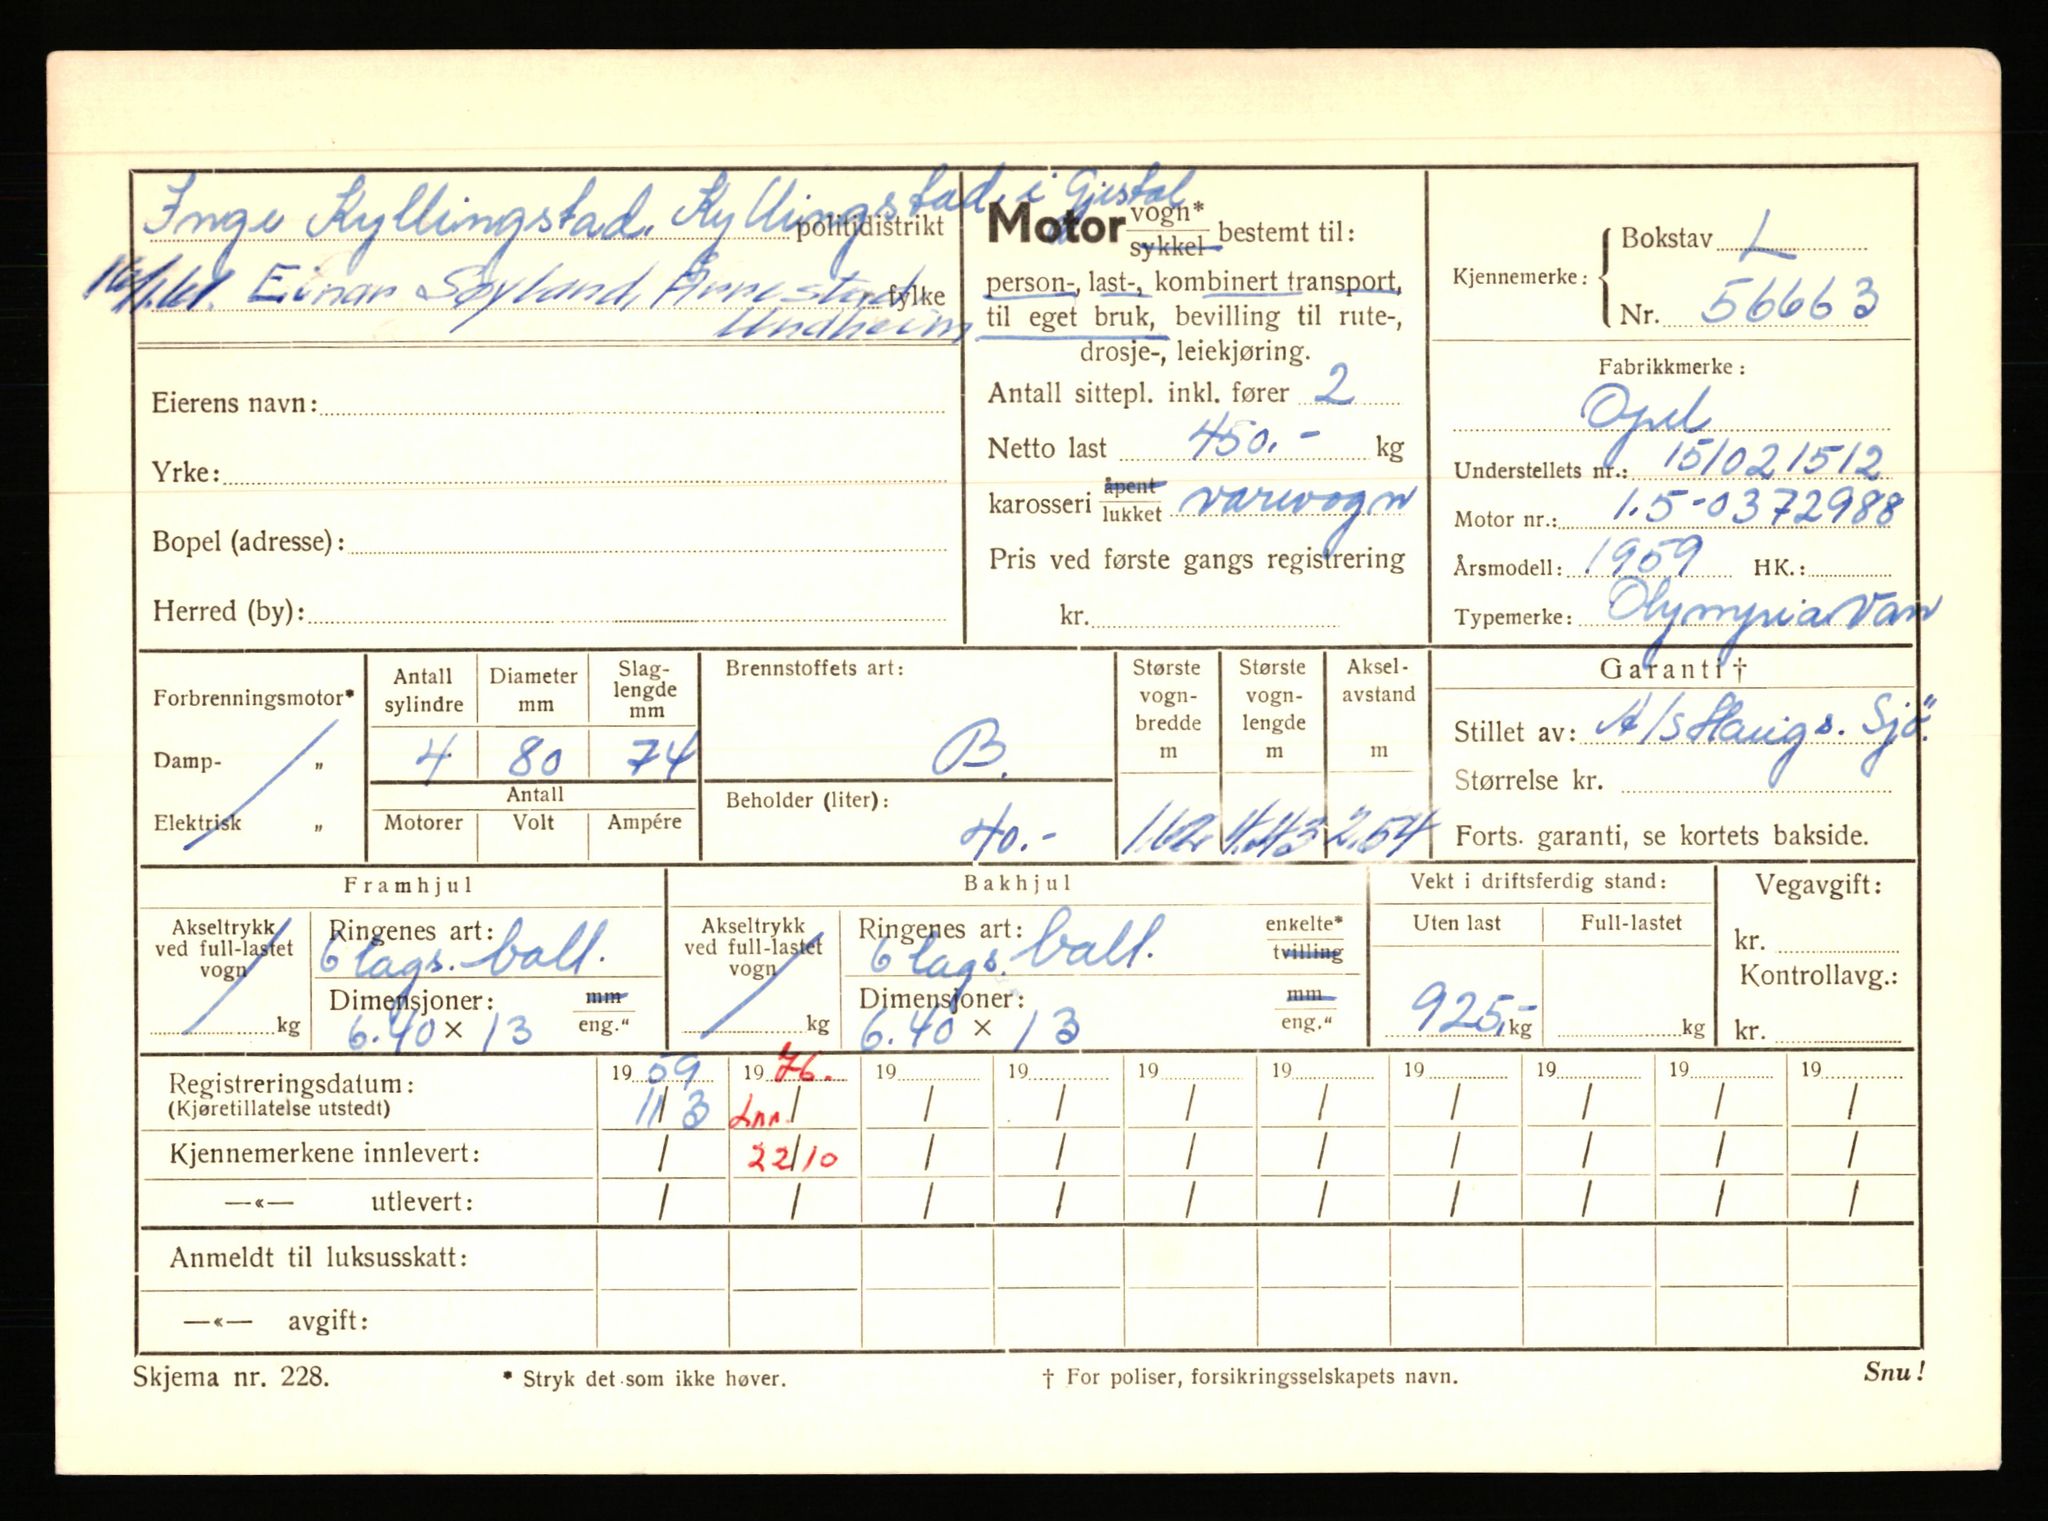 Inge Kyllingstad. Kyllingstad i Gjestal
politidistrikt
Einar Søyland, Årrestad
fylke
Undheim
Eierens navn:
Yrke:
Bopel (adresse):
Herred (by):
Motor vogn* sykkel bestemt til:
person-, last-, kombinert transport,
til eget bruk, bevilling til rute-,
drosje-, leiekjøring.
Antall sittepl. inkl. fører 2
Netto last 450.- kg
karosseri åpent lukket varevogn
Pris ved første gangs registrering
kr.
Kjennemerke: Bokstav L
Nr. 56663
Fabrikkmerke:
Opel
Understellets nr.: 151021512
Motor nr.: 1.5-0372988
Årsmodell: 1959 HK.:
Typemerke: Olympia Van
Forbrenningsmotor*
Damp- „
Elektrisk „
Antall sylindre Diameter mm Slaglengde mm
4 80 74
Antall
Motorer Volt Ampére
Brennstoffets art:
B.
Beholder (liter):
40.-
Største vognbredde m Største vognlengde m Akselavstand m
1.62 4.43 2.54
Garanti †
Stillet av: A/S Haugs. Sjö.
Størrelse kr.
Forts. garanti, se kortets bakside.
Framhjul
Akseltrykk ved full-lastet vogn
kg
Ringenes art:
6 lags. ball.
Dimensjoner: mm eng."
6.40 × 13
Bakhjul
Akseltrykk ved full-lastet vogn
kg
Ringenes art: enkelte* tvilling
6 lags. ball.
Dimensjoner: mm eng."
6.40 × 13
Vekt i driftsferdig stand:
Uten last Full-lastet
925,- kg kg
Vegavgift:
kr.
Kontrollavg.:
kr.
Registreringsdatum: 19 59 19 76. 19 19 19 19 19 19 19 19
(Kjøretillatelse utstedt) 11/3 Lnn. / / / / / / / / /
Kjennemerkene innlevert: / 22/10 / / / / / / / /
—«— utlevert: / / / / / / / / / /
Anmeldt til luksusskatt:
—«— avgift:
Skjema nr. 228. * Stryk det som ikke høver. † For poliser, forsikringsselskapets navn. Snu!